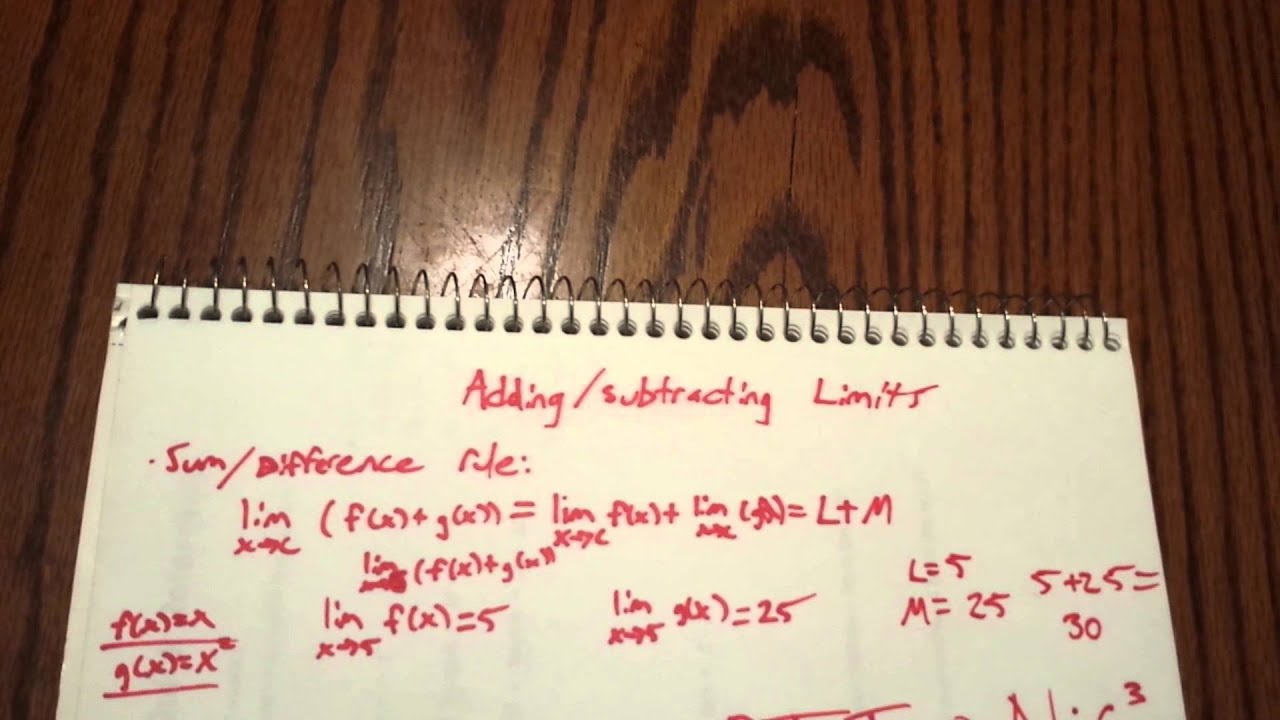 Adding/subtracting Limits
· Sum/Difference rule:
lim x→c (f(x)+g(x)) = lim x→c f(x) + lim x→c (g(x)) = L+M
lim (f(x)+g(x))
f(x)=x
g(x)=x²
lim x→5 f(x)=5
lim x→5 g(x)=25
L=5
M=25
5+25=
30